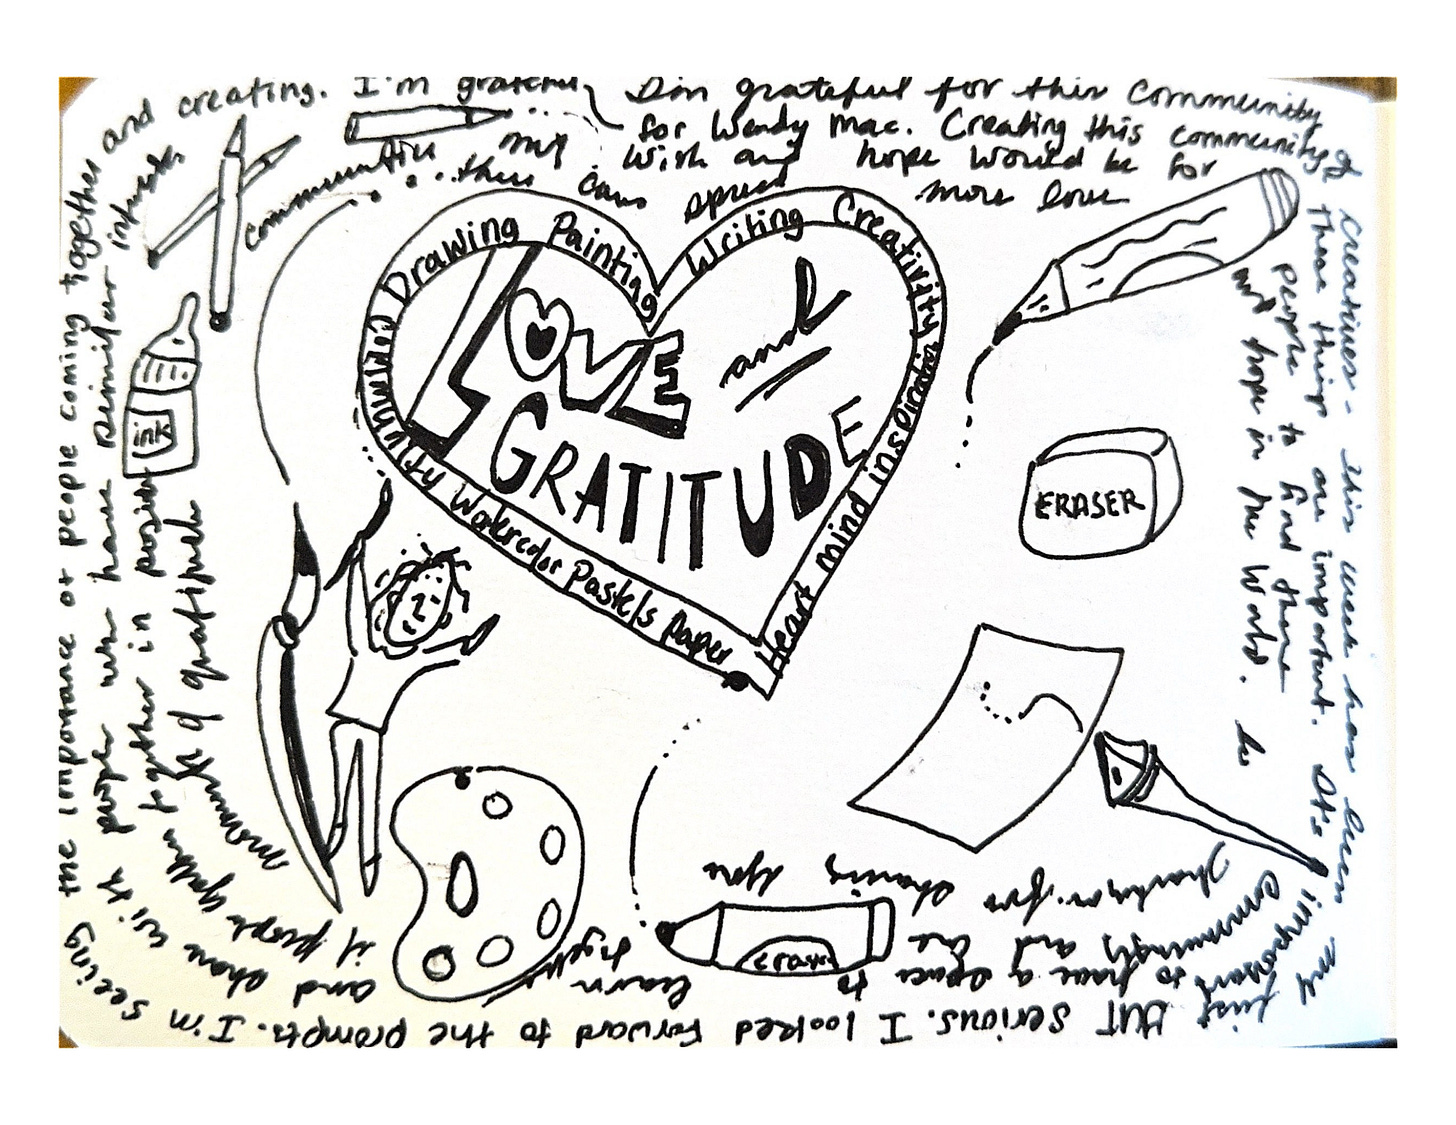 LOVE
and
GRATITUDE
Drawing Painting
Writing Creativity
inspiration
Heart mind
Community Watercolor Pastels Paper
I'm grateful for this community of creatives - this week has been
for Wendy Mac. Creating this community
these things are important. It's important
wish and hope would be for
more love
people to find these
and hope in the world.
just BUT serious. I looked forward to the prompts. I'm seeing
the importance of people coming together and creating. I'm grateful
community to have a space to learn
and one
Thank you for sharing
and share with people who have similar interests
if people gather together in
of gratitude
communities
my
this can spread
ink
ERASER
Eraser